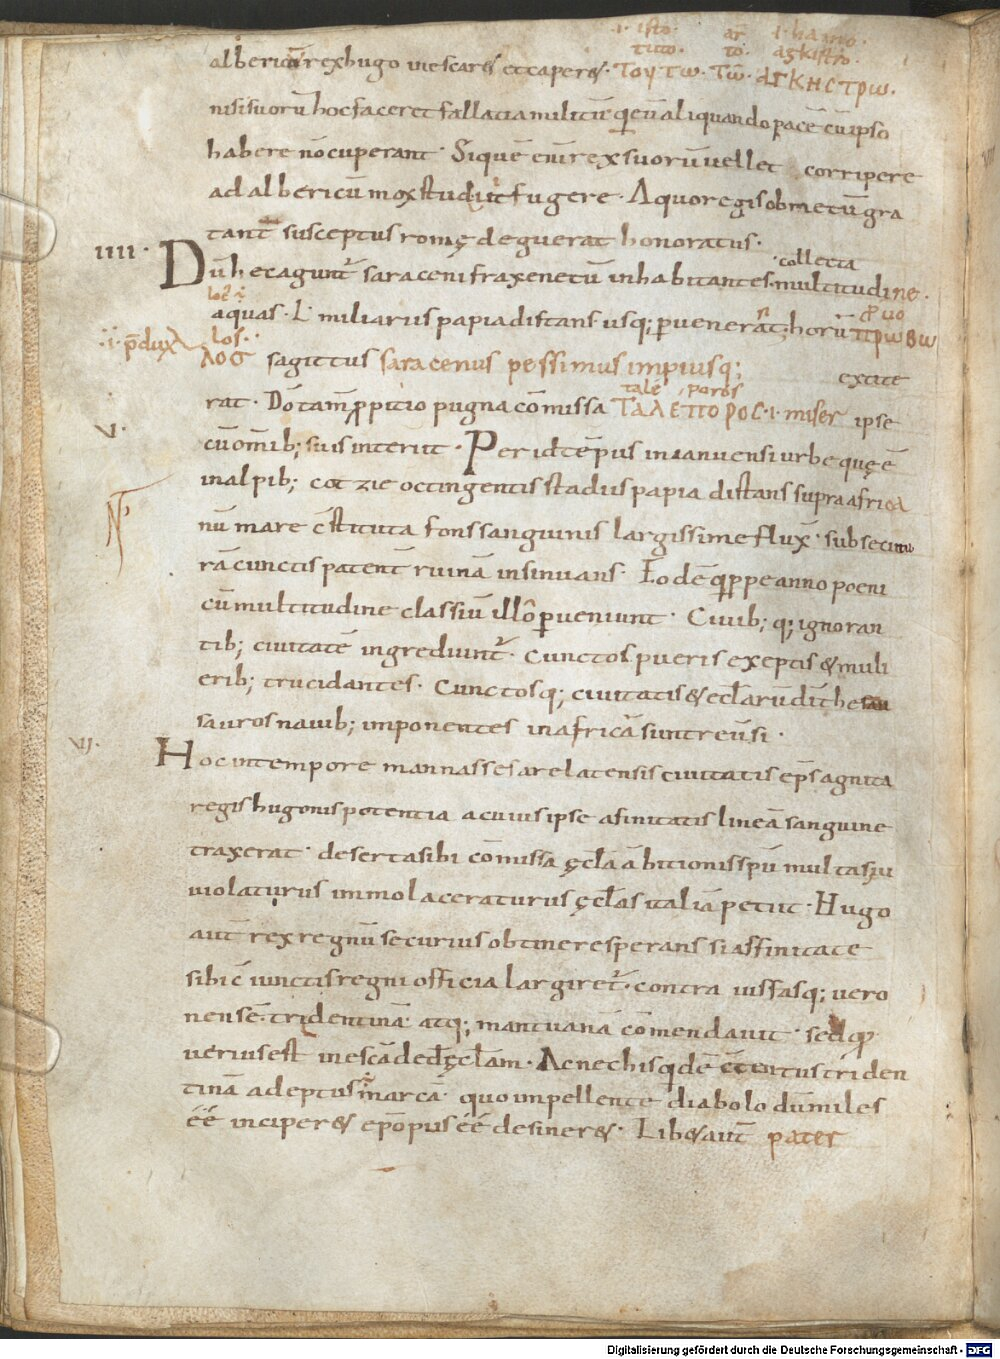 ·i· isto· ar ·i· hamo·
tuto· to· agkistro·
albericū rex hugo inescar& et caper&· Τουτω· Τω· αΓΚΗCΤρω·
nisi suorū hoc faceret fallatia militū q̄ eū aliquando pacē cū ipso
habere ñ cuperant· Si quē enī rex suorū vellet corripere
ad albericum mox studuit fugere· A quo regis ob metū gra
tant̄ susceptus romę deguerat honoratus·
IIII· Dū hec agunt̄ saraceni fraxenetū inhabitantes· collecta multitudine·
loc̄
aquas· L· miliariis papia distans usq; pervenerat· horū προΒω
·i· p̄dux los·
λΟC sagittus saracenus pessimus impiusq; extite
tale poros
rat· Do tam̄ p̄pitio pugna cōmissa ΤΑλΕΠΟΡΟC· i· miser ipse
V· cū om̄ib; suis interiit· Per idē tēpus in ianuensi urbe quę ē
in alpib; cotzie octingentis stadiis papia distans supra africa
nū mare c̄stituta fons sanguinis largissime flux̄· subsecutu
rā cunctis patent̄ ruinā insinuans· Eodē q̄ppe anno poeni
cū multitudine classiū illo perveniunt· Civib; q; ignoran
tib; civitatē ingrediunt̄· cunctos pueris exeptis & muli
erib; trucidantes· Cunctosq; civitatis & eccl̄arū dī the
sauros navib; imponentes in africā sunt reūsi·
VI· Hoc in tempore mannasses arelatensis civitatis ep̄s agnita
regis hugonis potentia a cuius ipse afinitatis lineā sanguine
traxerat· deserta sibi cōmissa ęccl̄a ābitionis sp̄u multas iu
violaturus immo laceraturus ęccl̄as italiā petiit· Hugo
aut̄ rex regnū securius obtinere sperans si affinitate
sibi c̄iunctis regni officia largiret̄· contra ius fasq; vero
nensē· tridentinā· atq; mantuanā cōmendavit· sed q̄
verius est in escā ded̄ ęccl̄am· Ac nec his q̄dē c̄tentus triden
tinā adeptus marcā· quo impellente diabolo dū miles
ēē inciper& ep̄opus ēē desiner&· Lib& aut̄ pater
Digitalisierung gefördert durch die Deutsche Forschungsgemeinschaft - DFG